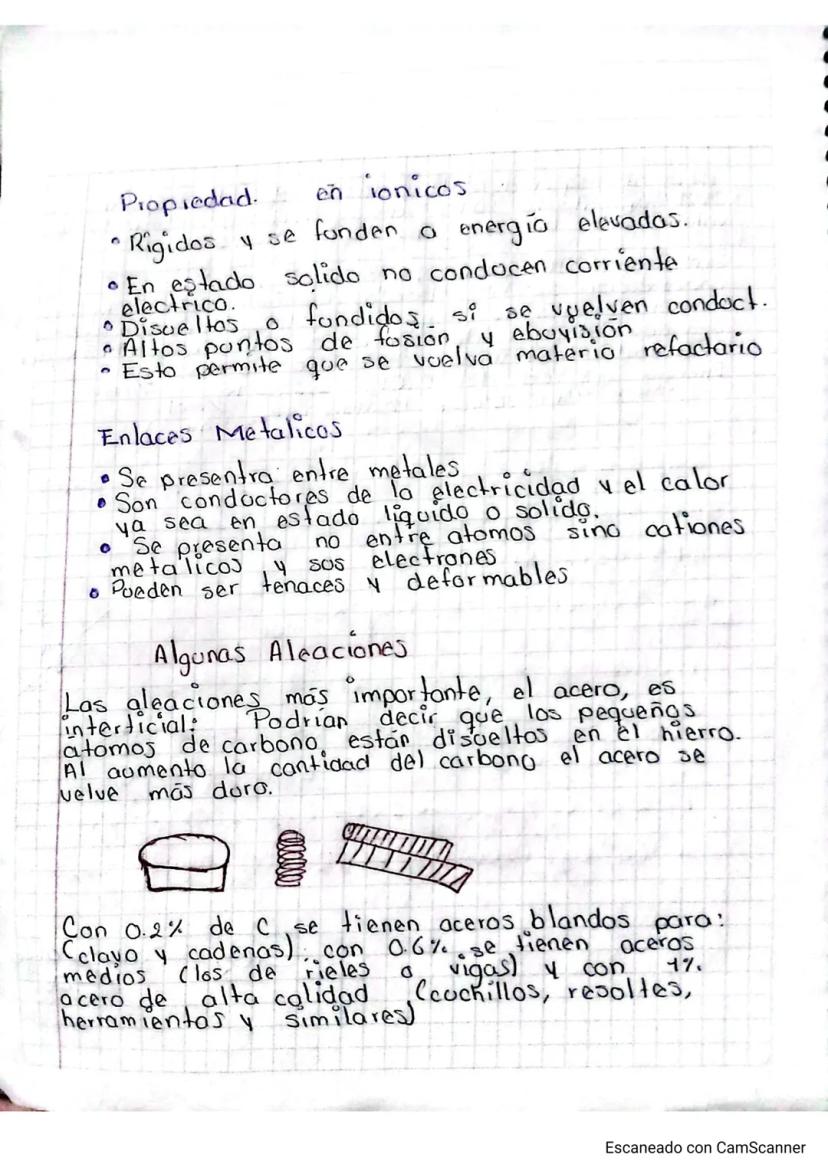 Propiedad. en ionicos
• Rigidos y se funden a energía elevadas.
• En estado solido no conducen corriente
electrica.
• Disueltos o fundidos si se vuelven conduct.
• Altos puntos de fusión y ebuyisión
• Esto permite que se vuelva materia refactario
Enlaces Metalicos
• Se presentra entre metales
• Son conductores de la electricidad y el calor
ya sea en estado liquido o solido.
• Se presenta no entre atomos sino cationes
metalicos y sus electrones
• Pueden ser tenaces y deformables
Algunas Aleaciones
Las aleaciones más importante, el acero, es
interticial: Podrían decir que los pequeños
atomos de carbono están disueltos en el hierro.
Al aumento la cantidad del carbono el acero se
vuelve más duro.
Con 0.2% de C se tienen aceros blandos para:
(clavo y cadenas); con 0.6% se tienen aceros
medios (los de rieles o vigas) y con 1%
acero de alta calidad (cuchillos, resoltes,
herramientas y similares)
Escaneado con CamScanner